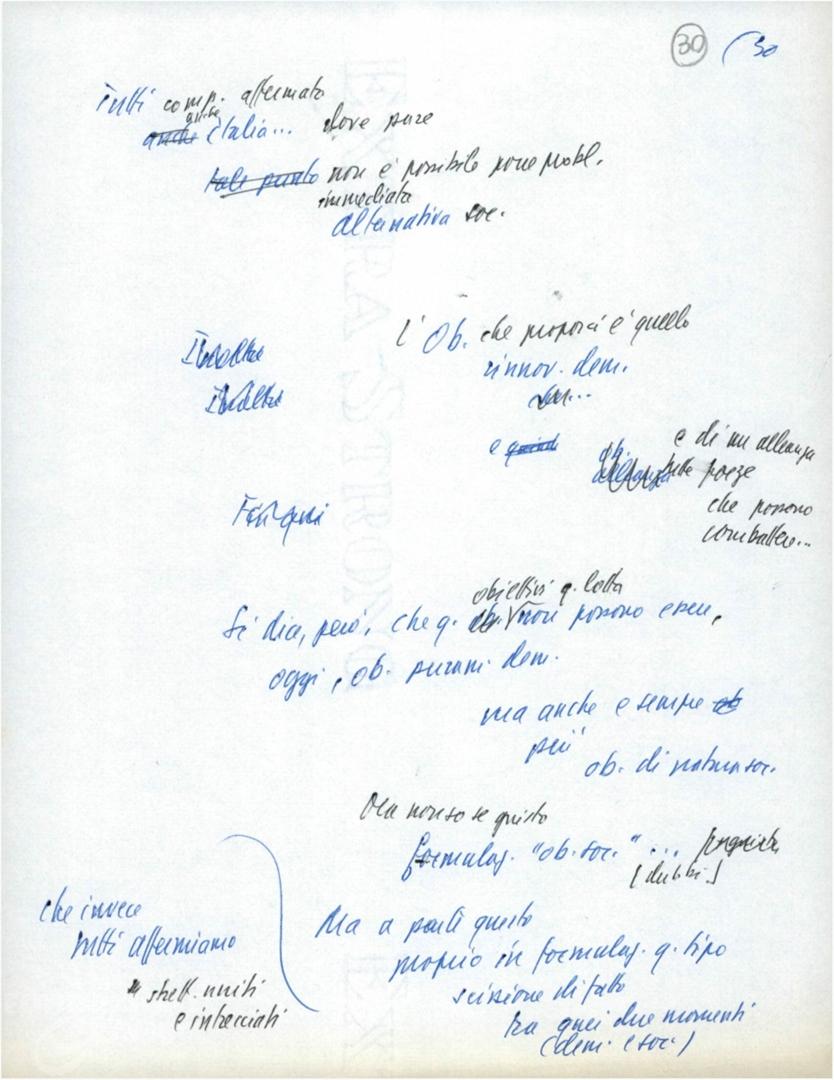 30 (30
Tutti comp. affermato
anche
anche Italia... dove pure
tale punto non è possibile porre probl.
immediata
alternativa soc.
L' Ob. che proporci è quello
Inoltre rinnov. dem.
Inoltre
e quindi
e di un alleanza
alleanza delle forze
che possono
combattere...
Fin qui
obiettivi q. lotta
Si dica, però, che q. ob. non possono essere,
oggi, ob. puram. dem.
ma anche e sempre ob
più
ob. di natura soc.
Ora non so se giusto
formulaz. "ob. soc." ...
[dubbi]
che invece
tutti affermiamo
strett. uniti
e intrecciati
Ma a parte questo
proprio in formulaz. q. tipo
scissione di fatto
tra quei due momenti
(dem. e soc.)